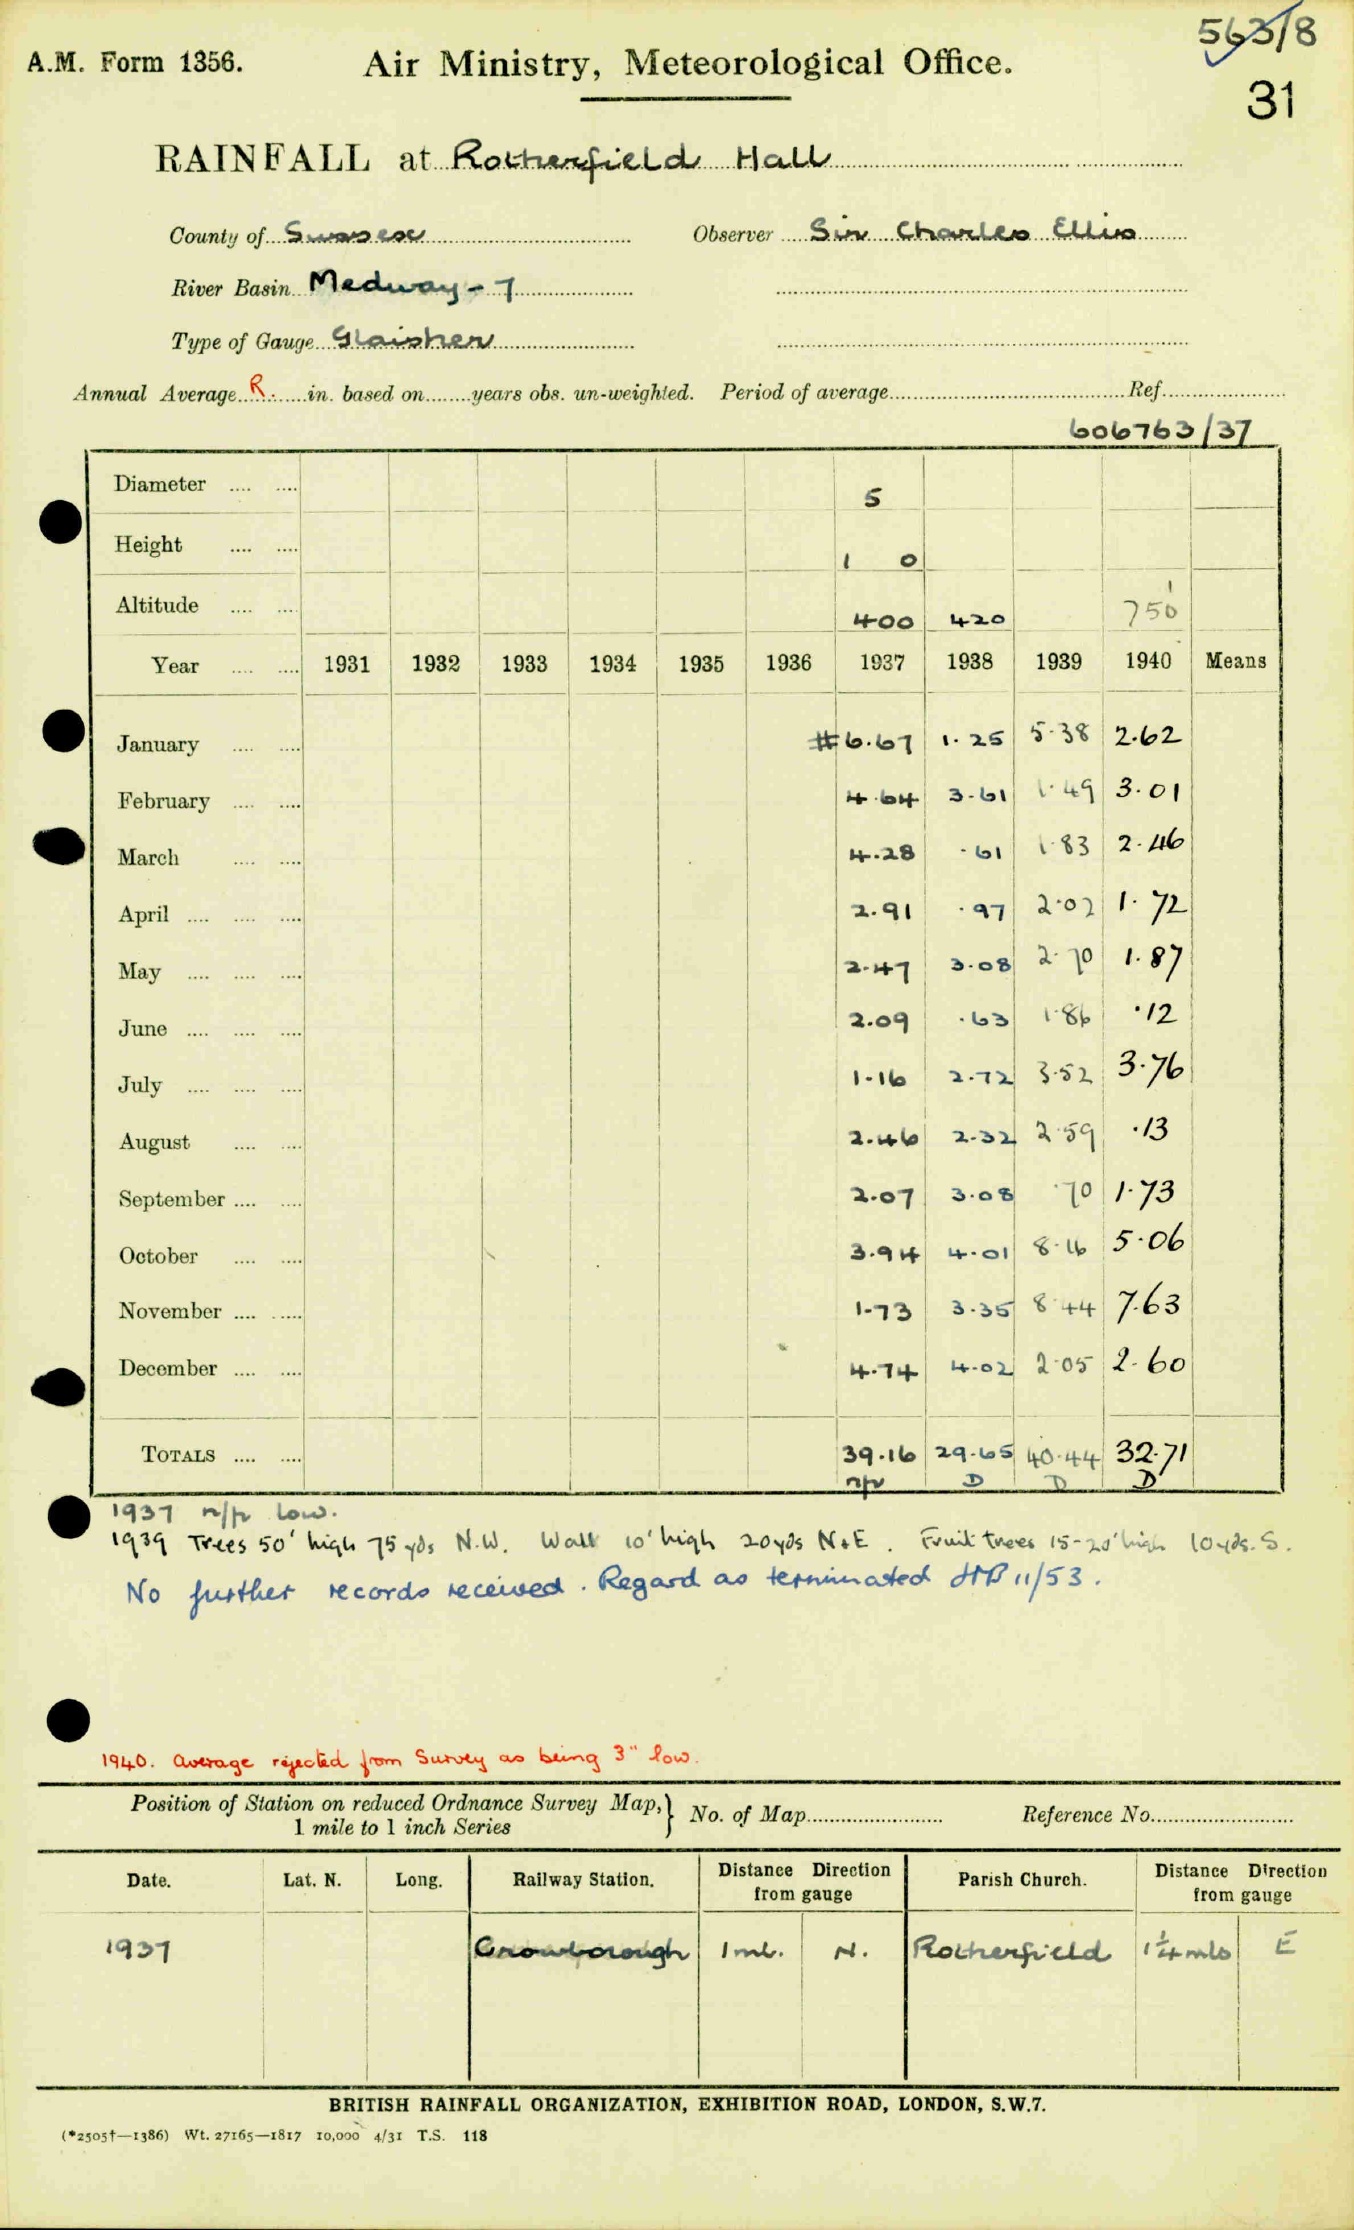 563/8
A.M. Form 1356. Air Ministry, Meteorological Office.
31
RAINFALL at Rotherfield Hall
County of Sussex Observer Sir Charles Ellis
River Basin Medway - 7
Type of Gauge Glaisher
Annual Average R. in. based on years obs. un-weighted. Period of average Ref.
606763/37
Diameter 5
Height 1 0
Altitude 400 420 750'
Year 1931 1932 1933 1934 1935 1936 1937 1938 1939 1940 Means
January #6.67 1.25 5.38 2.62
February 4.64 3.61 1.49 3.01
March 4.28 .61 1.83 2.46
April 2.91 .97 2.02 1.72
May 2.47 3.08 2.70 1.87
June 2.09 .63 1.86 .12
July 1.16 2.72 3.52 3.76
August 2.46 2.32 2.59 .13
September 2.07 3.08 .70 1.73
October 3.94 4.01 8.16 5.06
November 1.73 3.35 8.44 7.63
December 4.74 4.02 2.05 2.60
TOTALS 39.16 29.65 40.44 32.71
n/r D D D
1937 n/r low.
1939 Trees 50' high 75 yds N.W. Wall 10' high 20yds N+E. Fruit trees 15-20' high 10yds. S.
No further records received. Regard as terminated HB 11/53.
1940. Average rejected from Survey as being 3" low.
Position of Station on reduced Ordnance Survey Map, } No. of Map Reference No.
1 mile to 1 inch Series
Date. Lat. N. Long. Railway Station. Distance Direction from gauge Parish Church. Distance Direction from gauge
1937 Crowborough 1 ml. N. Rotherfield 1¼ mls E
BRITISH RAINFALL ORGANIZATION, EXHIBITION ROAD, LONDON, S.W.7.
(*2505†—1386) Wt. 27165—1817 10,000 4/31 T.S. 118